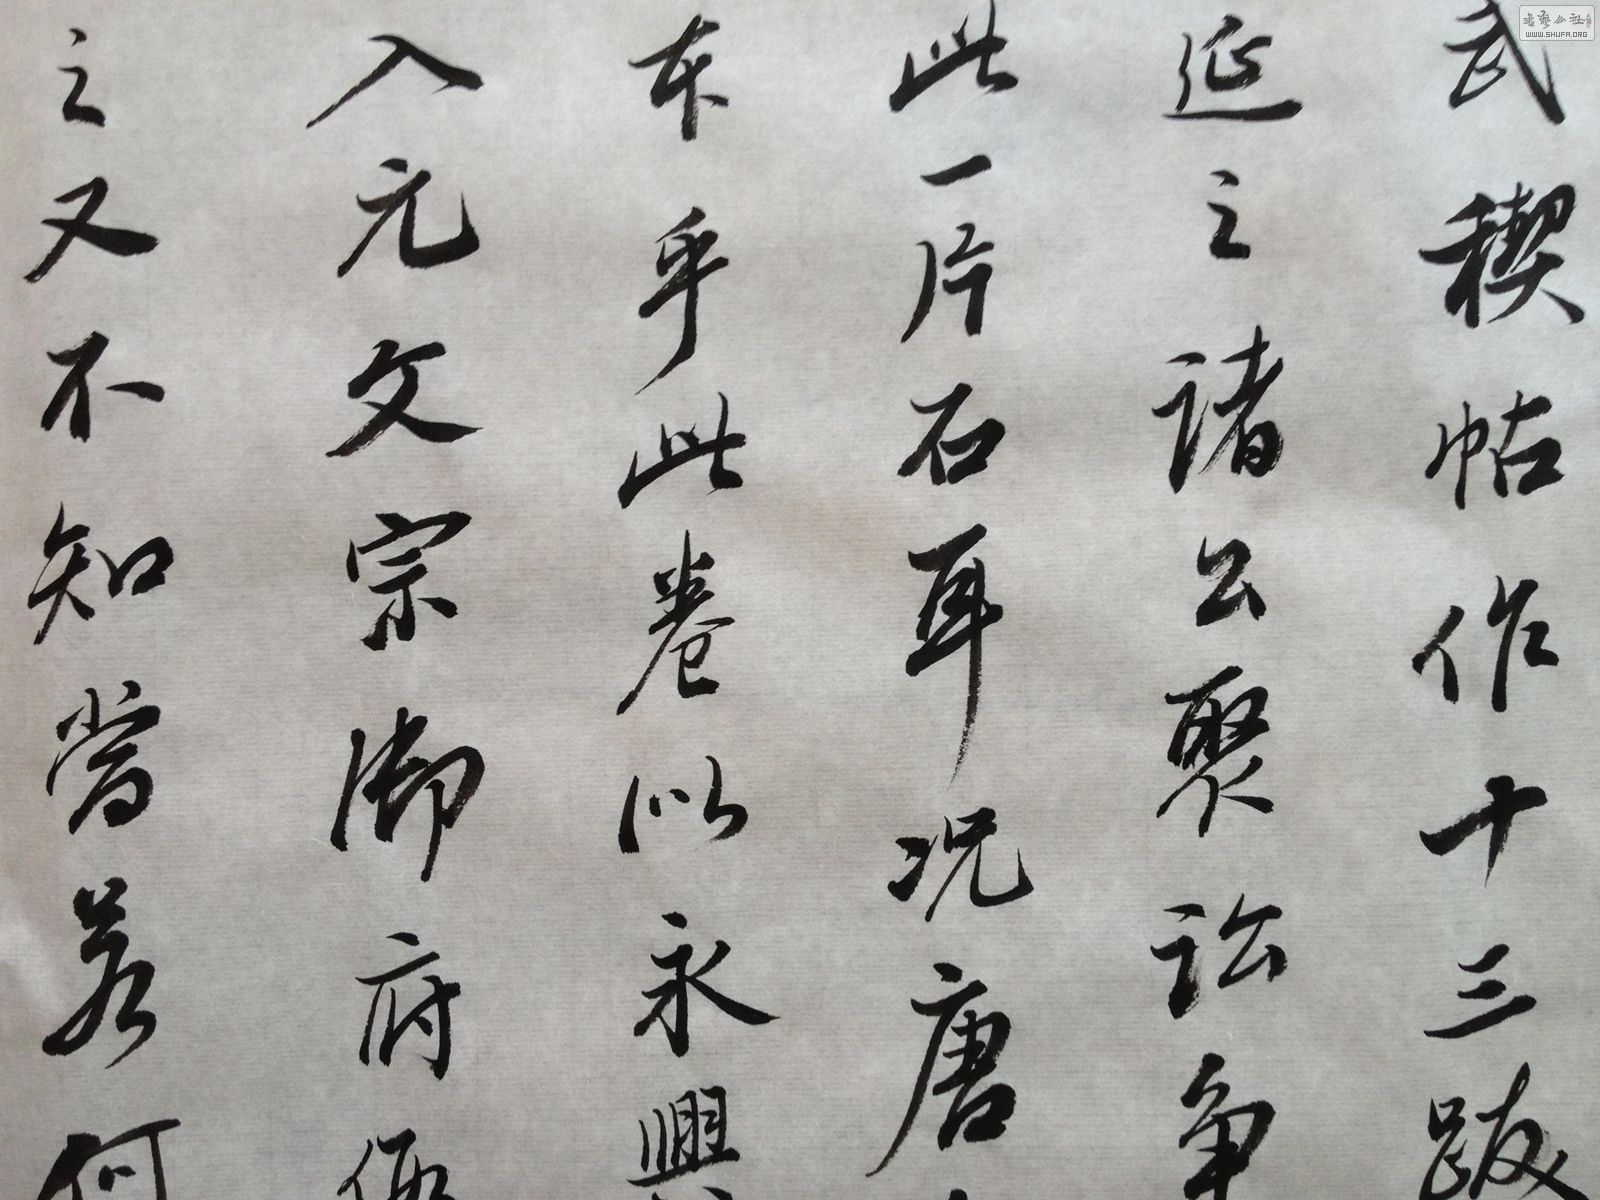 武稧帖作十三跋
延之诸公聚讼争
此一片石耳况唐
本乎此卷以永興
入元文宗御府
之又不知當若何
書藝公社
WWW.SHUFA.ORG